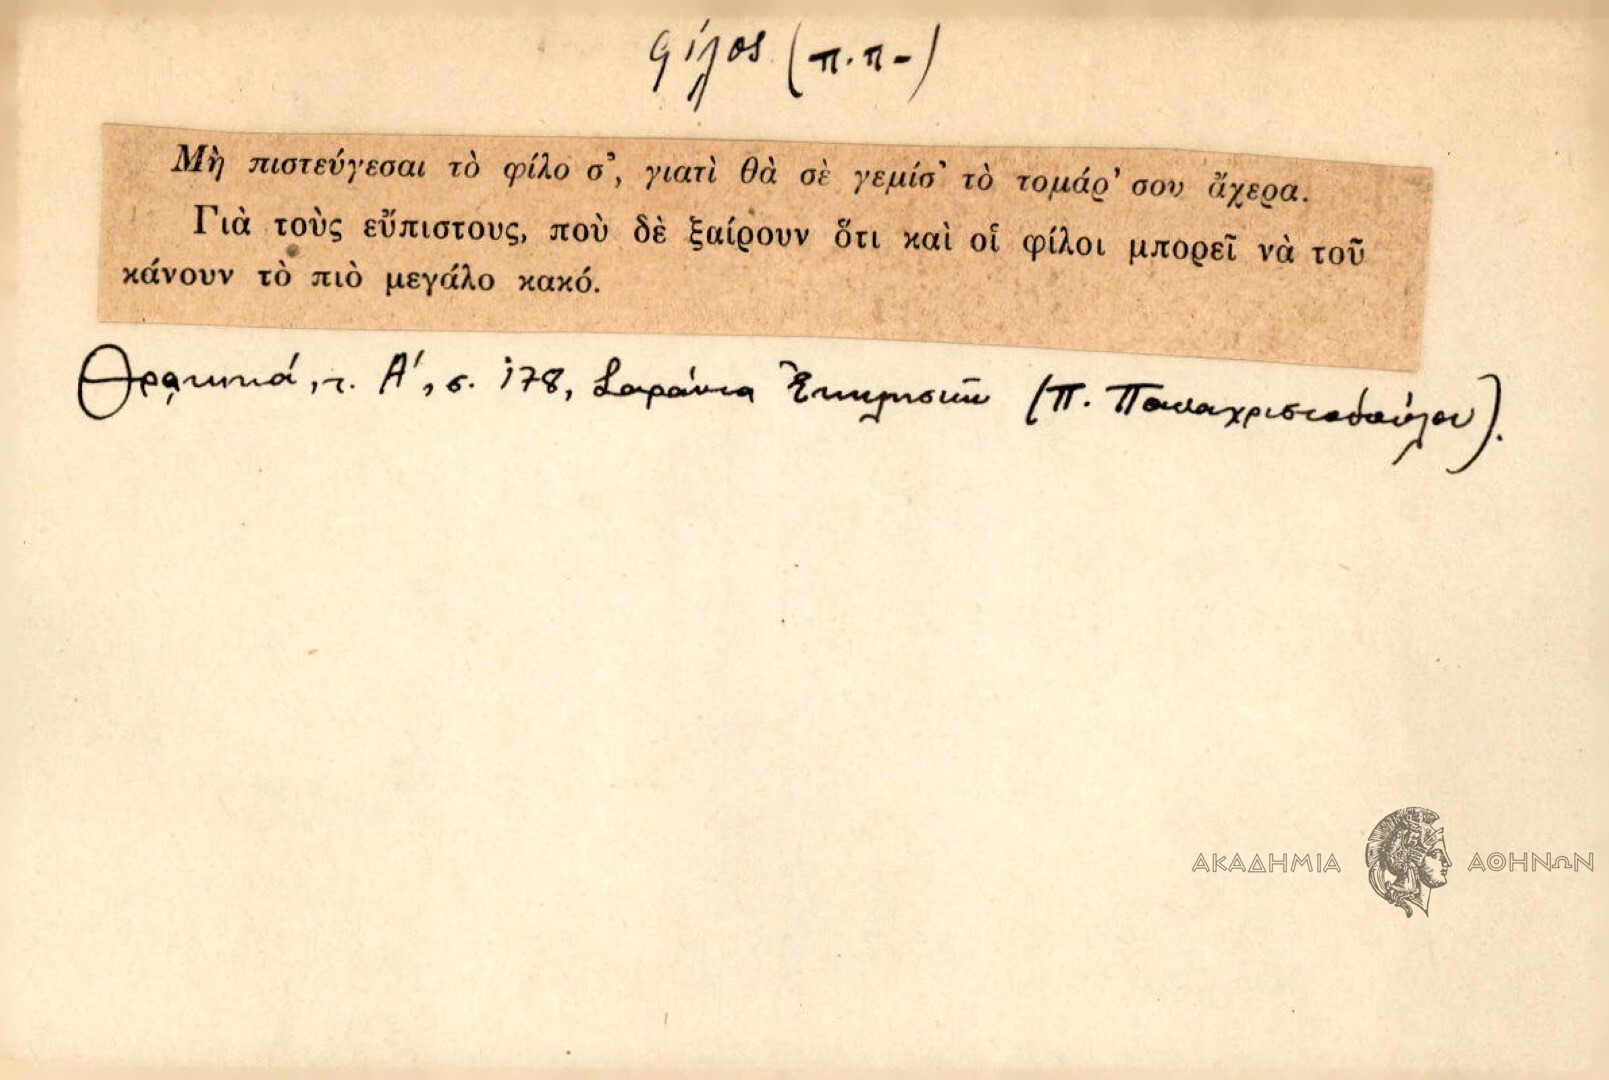 φίλος (π.π-)
Μὴ πιστεύγεσαι τὸ φίλο σ', γιατὶ θὰ σὲ γεμίσ' τὸ τομάρ' σου ἄχερα.
Γιὰ τοὺς εὔπιστους, ποὺ δὲ ξαίρουν ὅτι καὶ οἱ φίλοι μπορεῖ νὰ τοῦ
κάνουν τὸ πιὸ μεγάλο κακό.
Θρακικά, τ. Α', σ. 178, Σαράντα Ἐκκλησιῶν (Π. Παπαχριστοδούλου).
ΑΚΑΔΗΜΙΑ ΑΘΗΝΩΝ